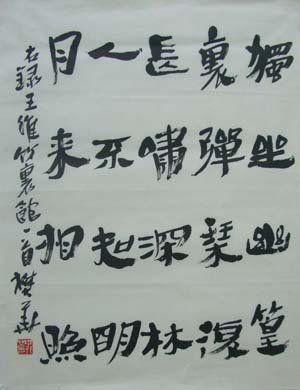 獨坐幽篁
裏彈琹復
長嘯深林
人不知明
月来相照
右録王維竹裏館一首